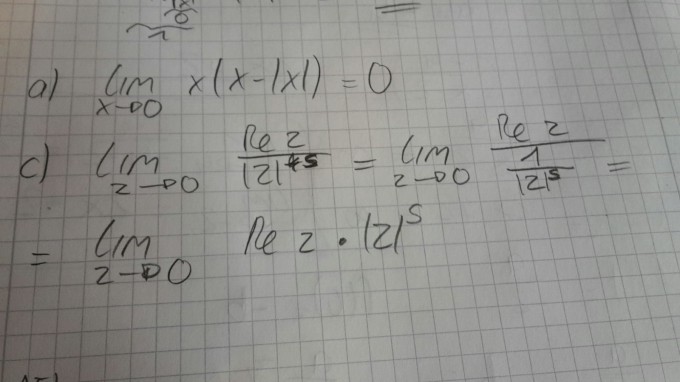 a) lim x→0 x(x-|x|) = 0
c) lim z→0 Re z / |z|^-s = lim z→0 Re z / (1 / |z|^s) =
= lim z→0 Re z · |z|^s